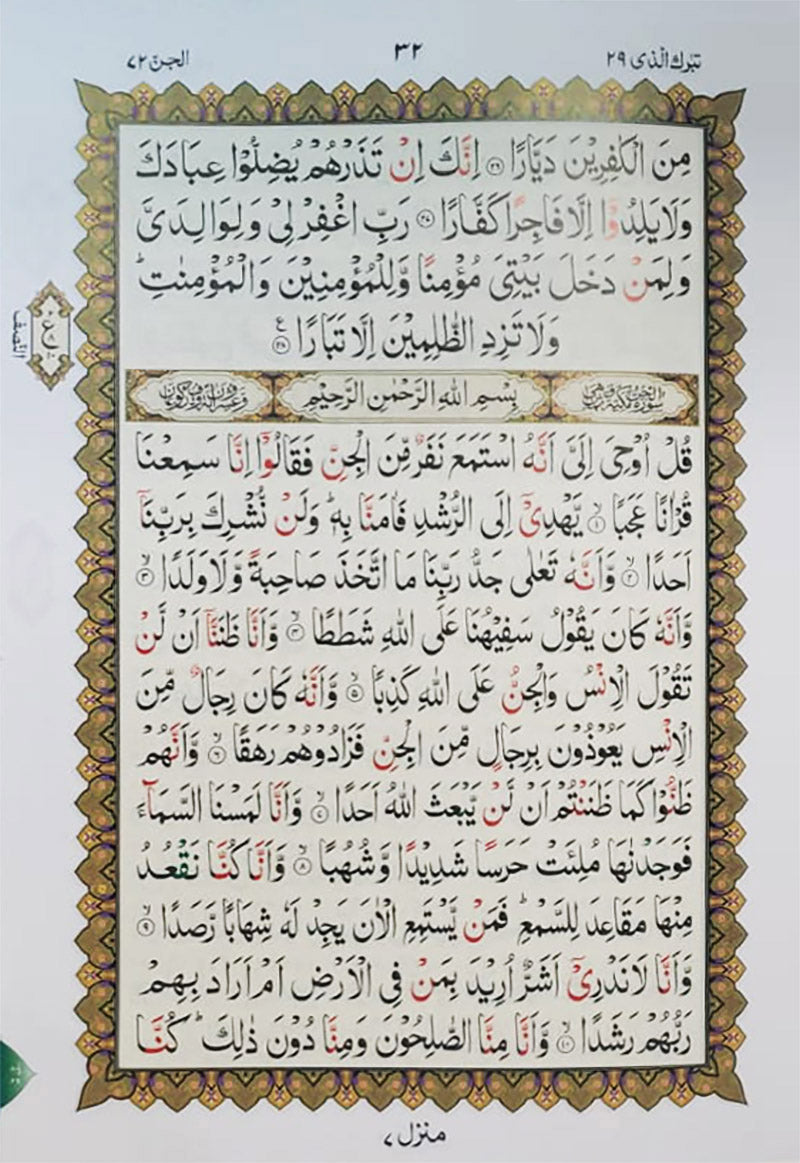 تبٰرك الّذی ۲۹
۳۲
الجنّ ۷۲
مِنَ الْكٰفِرِیْنَ دَیَّارًا ۝۲۶ اِنَّكَ اِنْ تَذَرْهُمْ یُضِلُّوْا عِبَادَكَ
وَلَا یَلِدُوْۤا اِلَّا فَاجِرًا كَفَّارًا ۝۲۷ رَبِّ اغْفِرْ لِیْ وَلِوَالِدَیَّ
وَلِمَنْ دَخَلَ بَیْتِیَ مُؤْمِنًا وَّلِلْمُؤْمِنِیْنَ وَالْمُؤْمِنٰتِ ؕ
وَلَا تَزِدِ الظّٰلِمِیْنَ اِلَّا تَبَارًا ۝۲۸ ع
النّصف
بِسْمِ اللهِ الرَّحْمٰنِ الرَّحِیْمِ
قُلْ اُوْحِیَ اِلَیَّ اَنَّهُ اسْتَمَعَ نَفَرٌ مِّنَ الْجِنِّ فَقَالُوْۤا اِنَّا سَمِعْنَا
قُرْاٰنًا عَجَبًا ۝۱ۙ یَّهْدِیْۤ اِلَی الرُّشْدِ فَاٰمَنَّا بِهٖ ؕ وَلَنْ نُّشْرِكَ بِرَبِّنَاۤ
اَحَدًا ۝۲ۙ وَّاَنَّهٗ تَعٰلٰی جَدُّ رَبِّنَا مَا اتَّخَذَ صَاحِبَةً وَّلَا وَلَدًا ۝۳ۙ
وَّاَنَّهٗ كَانَ یَقُوْلُ سَفِیْهُنَا عَلَی اللهِ شَطَطًا ۝۴ۙ وَّاَنَّا ظَنَنَّاۤ اَنْ لَّنْ
تَقُوْلَ الْاِنْسُ وَالْجِنُّ عَلَی اللهِ كَذِبًا ۝۵ۙ وَّاَنَّهٗ كَانَ رِجَالٌ مِّنَ
الْاِنْسِ یَعُوْذُوْنَ بِرِجَالٍ مِّنَ الْجِنِّ فَزَادُوْهُمْ رَهَقًا ۝۶ۙ وَّاَنَّهُمْ
ظَنُّوْا كَمَا ظَنَنْتُمْ اَنْ لَّنْ یَّبْعَثَ اللهُ اَحَدًا ۝۷ۙ وَّاَنَّا لَمَسْنَا السَّمَآءَ
فَوَجَدْنٰهَا مُلِئَتْ حَرَسًا شَدِیْدًا وَّشُهُبًا ۝۸ۙ وَّاَنَّا كُنَّا نَقْعُدُ
مِنْهَا مَقَاعِدَ لِلسَّمْعِ ؕ فَمَنْ یَّسْتَمِعِ الْاٰنَ یَجِدْ لَهٗ شِهَابًا رَّصَدًا ۝۹ۙ
وَّاَنَّا لَا نَدْرِیْۤ اَشَرٌّ اُرِیْدَ بِمَنْ فِی الْاَرْضِ اَمْ اَرَادَ بِهِمْ
رَبُّهُمْ رَشَدًا ۝۱۰ۙ وَّاَنَّا مِنَّا الصّٰلِحُوْنَ وَمِنَّا دُوْنَ ذٰلِكَ ؕ كُنَّا
منزل ۷